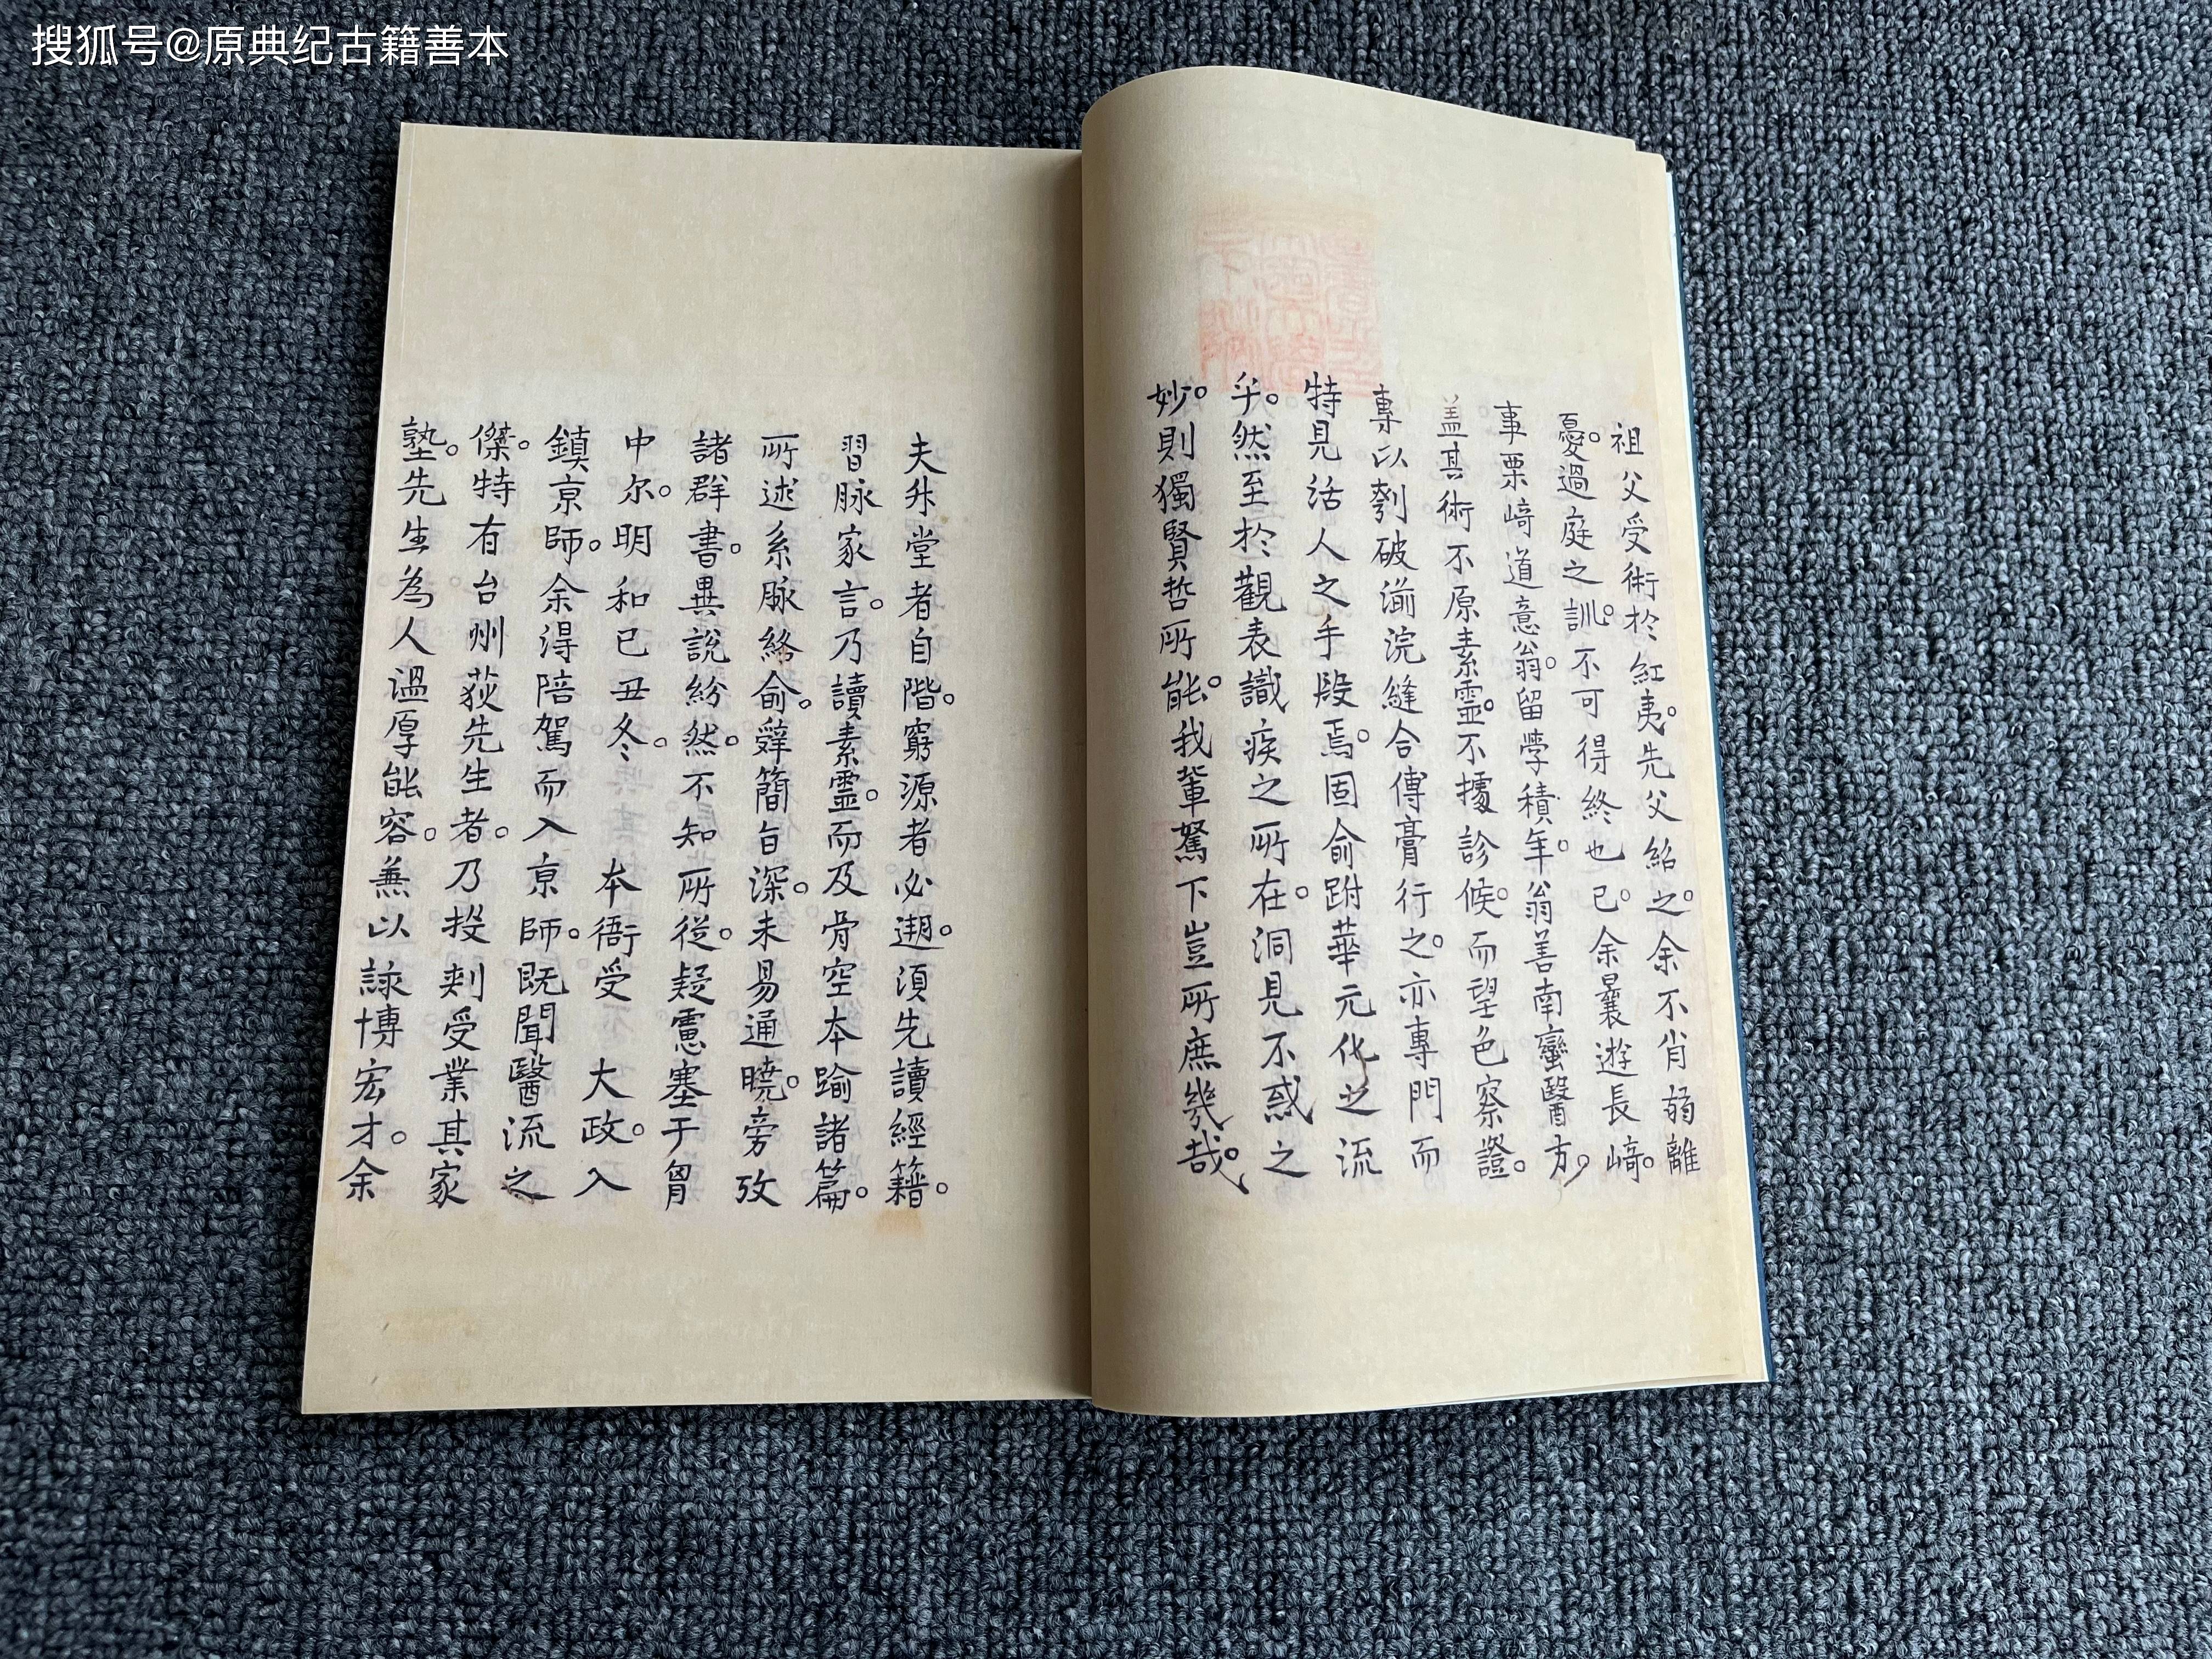 搜狐号@原典纪古籍善本
祖父受術於紅夷。先父紹之。余不肖弱離
憂。過庭之訓。不可得終也已。余曩遊長﨑。
事栗﨑道意翁。留學積年。翁善南蠻醫方。
盖其術不原素靈。不據診候。而望色察證。
專以刳破湔浣縫合傳膏行之。亦專門而
特見活人之手段焉。固俞跗華元化之流
乎。然至於觀表識疾之所在。洞見不惑之
妙。則獨賢哲所能。我輩駑下豈所庶幾哉。
夫升堂者自階。窮源者必遡。須先讀經籍。
習脉家言。乃讀素靈。而及骨空本踰諸篇。
所述系脈絡俞。辭簡旨深。未易通曉。旁攷
諸群書。異說紛然。不知所從。疑慮塞于胷
中尔。明和己丑冬。本衙受 大政。入
鎮京師。余得陪駕而入京師。既聞醫流之
傑。特有台州荻先生者。乃投刺受業其家
塾。先生為人溫厚能容。兼以詠博宏才。余